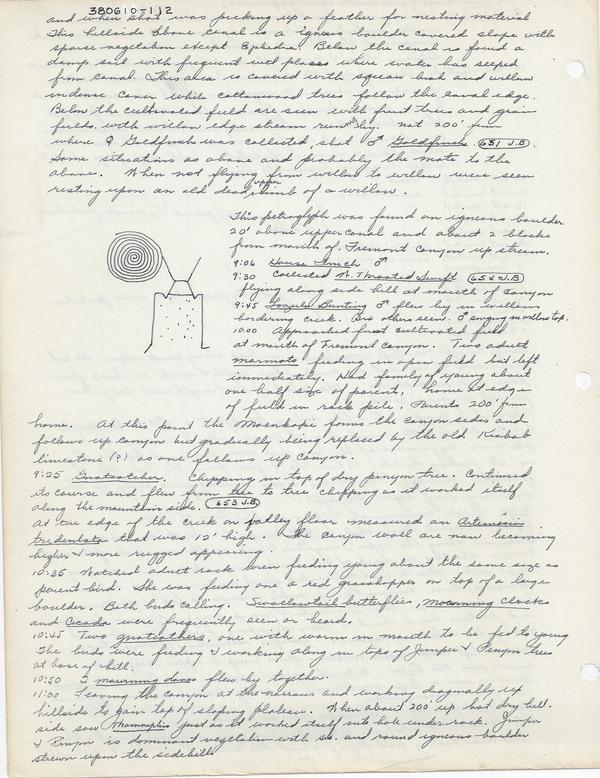 3806107-112
and when shot was picking up a feather for nesting material
This hillside above canal is a igneous boulder covered slope with
sparse vegetation except Ephedra. Below the canal is found a
damp soil with frequent wet places where water has seeped
from canal. This area is covered with squaw bush and willow
in dense cover while cottonwood trees follow the canal edge.
Below the cultivated field are seen with fruit trees and grain
fields, with willow edge stream running by. not 200' from
where ♀ Goldfinch was collected, shot ♂ Goldfinch. 651 J.B.
Same situations as above and probably the mate to the
above. When not flying from willow to willow were seen
resting upon an old dead upper limb of a willow.
This petroglyph was found on igneous boulder
20' above upper canal and about 2 blocks
from mouth of Fremont Canyon up stream.
9:06 House Finch ♂
9:30 Collected W. Throated Swift 652 J.B
flying along side hill at mouth of Canyon
9:45 Lazula Bunting ♂ flew by in willows
bordering creek. Six others seen. ♂ singing in willow top.
10:00 Approached first cultivated field
at mouth of Fremont Canyon. Two adult
marmots feeding in open field but left
immediately. Had family of young about
one half size of parent, home at edge
of field in rock pile. Parents 200' from
home. At this point the Moenkopi forms the canyon sides and
follows up canyon but gradually being replaced by the old Kiabab
limestone (?) as one follows up canyon.
9:25 Gnatcatcher. Chipping in top of dry pinyon tree. Continued
its course and flew from tree to tree chipping as it worked itself
along the mountain side. 653 J.B
At the edge of the creek on valley floor measured an Artemisia
tridentata that was 12' high. The canyon wall are now becoming
higher & more rugged appearing.
10:35 Watched adult rock wren feeding young about the same size as
parent bird. She was feeding one a red grasshopper on top of a large
boulder. Both birds calling. Swallowtail butterflies, mourning cloaks
and Cicada were frequently seen or heard.
10:45 Two gnatcatchers, one with worm in mouth to be fed to young
The birds were feeding & working along in tops of Juniper & Pinyon trees
at base of hill.
10:50 2 mourning doves flew by together.
11:00 Leaving the canyon at the narrows and working diagonally up
hillside to gain top of sloping plateau. When about 200' up hot dry hill-
side saw just as it worked itself into hole under rock. Juniper
& Pinyon is dominant vegetation with and round igneous boulder
strewn upon the sidehill.